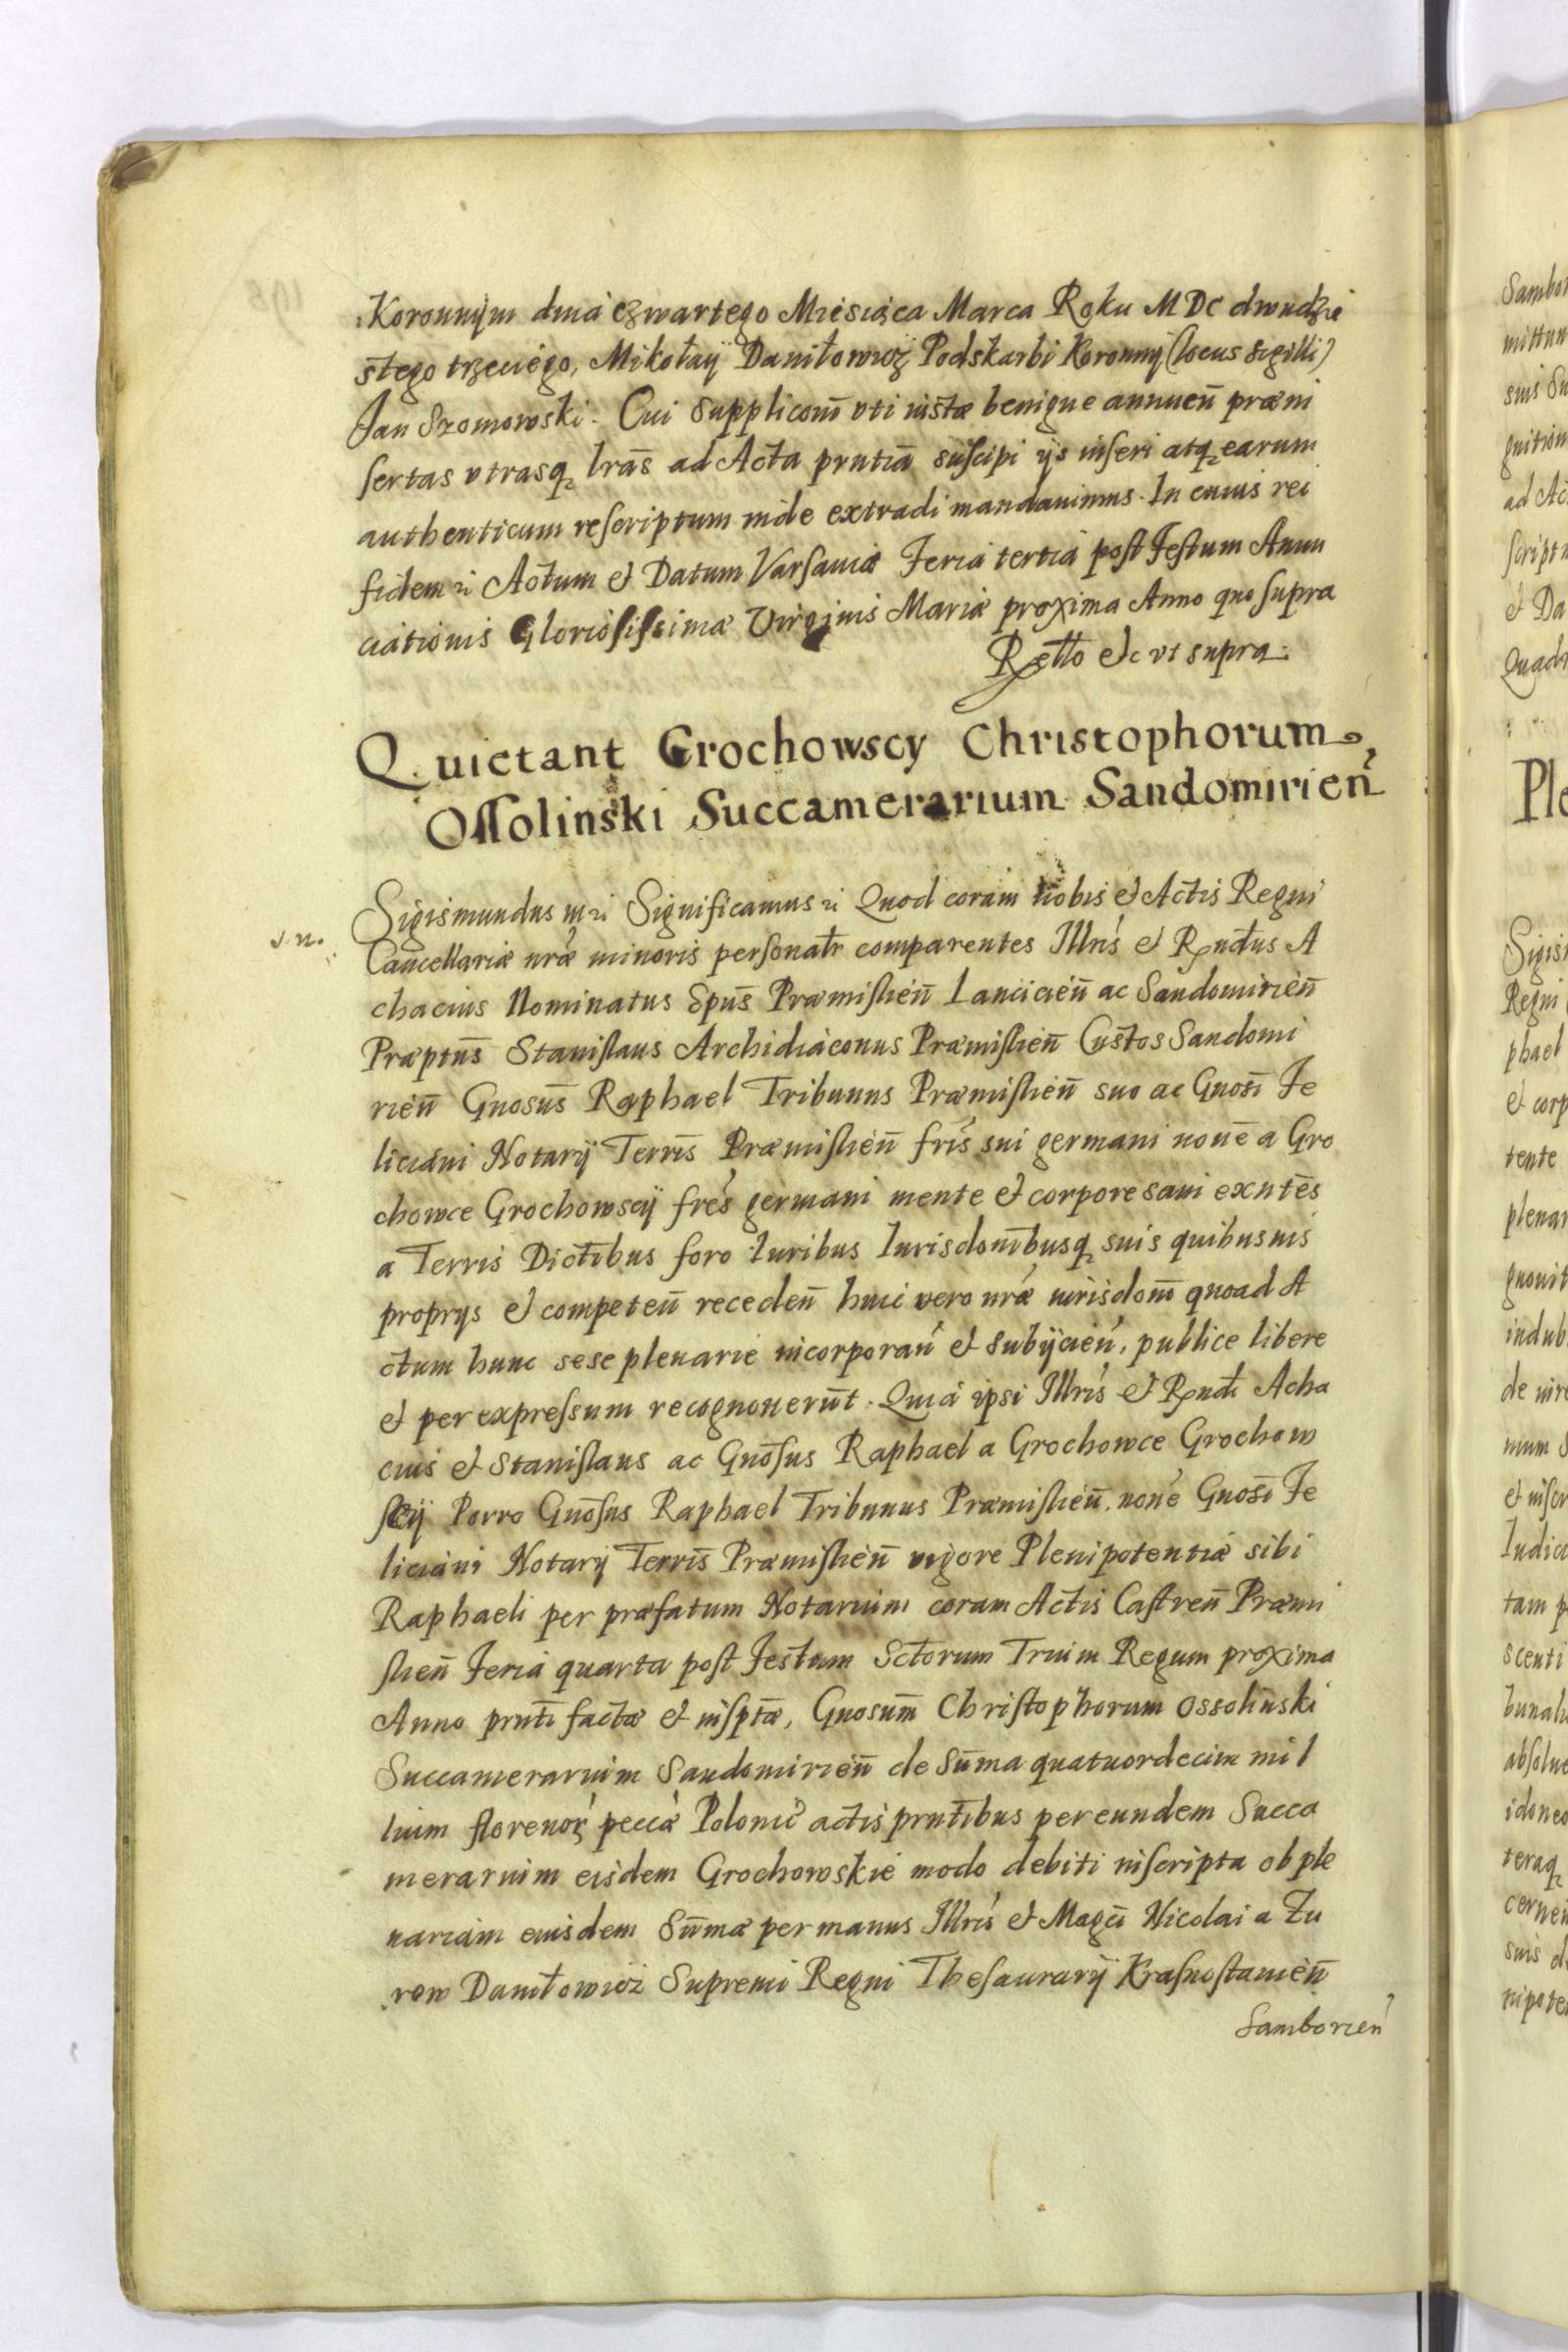 Koronnym dnia czwartego Miesiąca Marca Roku MDC dwudzie
stego trzeciego, Mikołaÿ Daniłowicz Podskarbi Koronny (locus sigilli)
Jan Szomowski. Cui supplicaōni vti iustæ benigne annuen̄ præin
sertas vtrasq, lrās ad Acta prntiā suscipi ijs inseri atq, earum
authenticum rescriptum inde extradi mandauimus. In cuius rei
fidem etc Actum et Datum Varsauiæ Feria tertia post Festum Annu
ciationis Gloriosissimæ Virginis Mariæ proxima Anno quo supra
Retto etc vt supra.
Quietant Grochowscy Christophorum
Ossolinski Succamerarium Sandomirien̄
Sigismundus III etc Significamus etc Quod coram nobis et Actis Regni
Cancellariæ nræ minoris personalr comparentes Illris et Rndus A
chacius Nominatus Epus̄ Præmislien̄ Lancicien̄ ac Sandomirien̄
Præptus̄ Stanislaus Archidiaconus Præmislien̄ Custos Sandomi
rien̄ Gnosus̄ Raphael Tribunus Præmislien̄ suo ac Gnosī Fe
liciani Notarij Terris̄ Præmislien̄ fris sui germani noīe a Gro
chowce Grochowscÿ fres germani mente et corpore sani exntēs
a Terris Dictībus foro Iuribus Iurisdonībusq, suis quibusuis
proprijs et competen̄ receden̄ huic vero nræ iurisdonī quoad A
ctum hunc sese plenarie incorporan̄ et subijcien̄, publice libere
et per expressum recognouerūt. Quia ipsi Illris et Rndī Acha
cius et Stanislaus ac Gnōsus Raphael a Grochowce Grochow
scÿ Porro Gnōsus Raphael Tribunus Præmislien̄. noīe Gnosī Fe
liciani Notarij Terris̄ Præmislien̄ vigore Plenipotentiæ sibi
Raphaeli per præfatum Notarium coram Actis Castren̄ Præmi
slien̄ Feria quarta post Festum Sctorum Trium Regum proxima
Anno prntī factæ et insptæ, Gnosum̄ Christophorum Ossolinski
Succamerarium Sandomirien̄ de Sum̄a quatuordecim mil
lium florenor peccæ Polonic̄ actis prntībus per eundem Succa
merarium eisdem Grochowskie modo debiti inscripta ob ple
nariam eiusdem Sum̄æ per manus Illris et Magcī Nicolai a Zu
row Daniłowicz Supremi Regni Thesaurarij Krasnostauien̄
Samborien̄